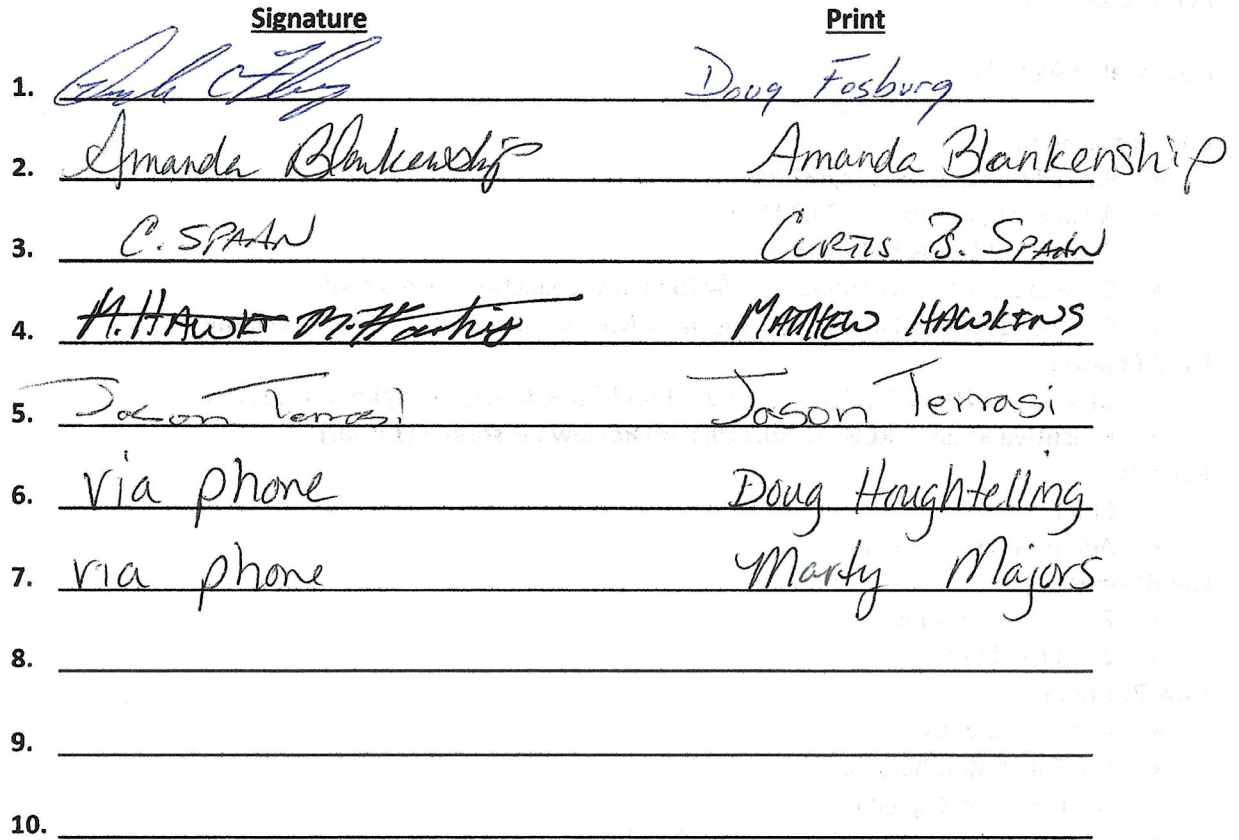 Signature Print
1. Doug Fosburg
2. Amanda Blankenship Amanda Blankenship
3. C. SPAAN CURTIS B. SPAAN
4. M. HAWKI M. Hawkins MATTHEW HAWKINS
5. Jason Terrasi Jason Terrasi
6. via phone Doug Houghtelling
7. via phone Marty Majors
8.
9.
10.